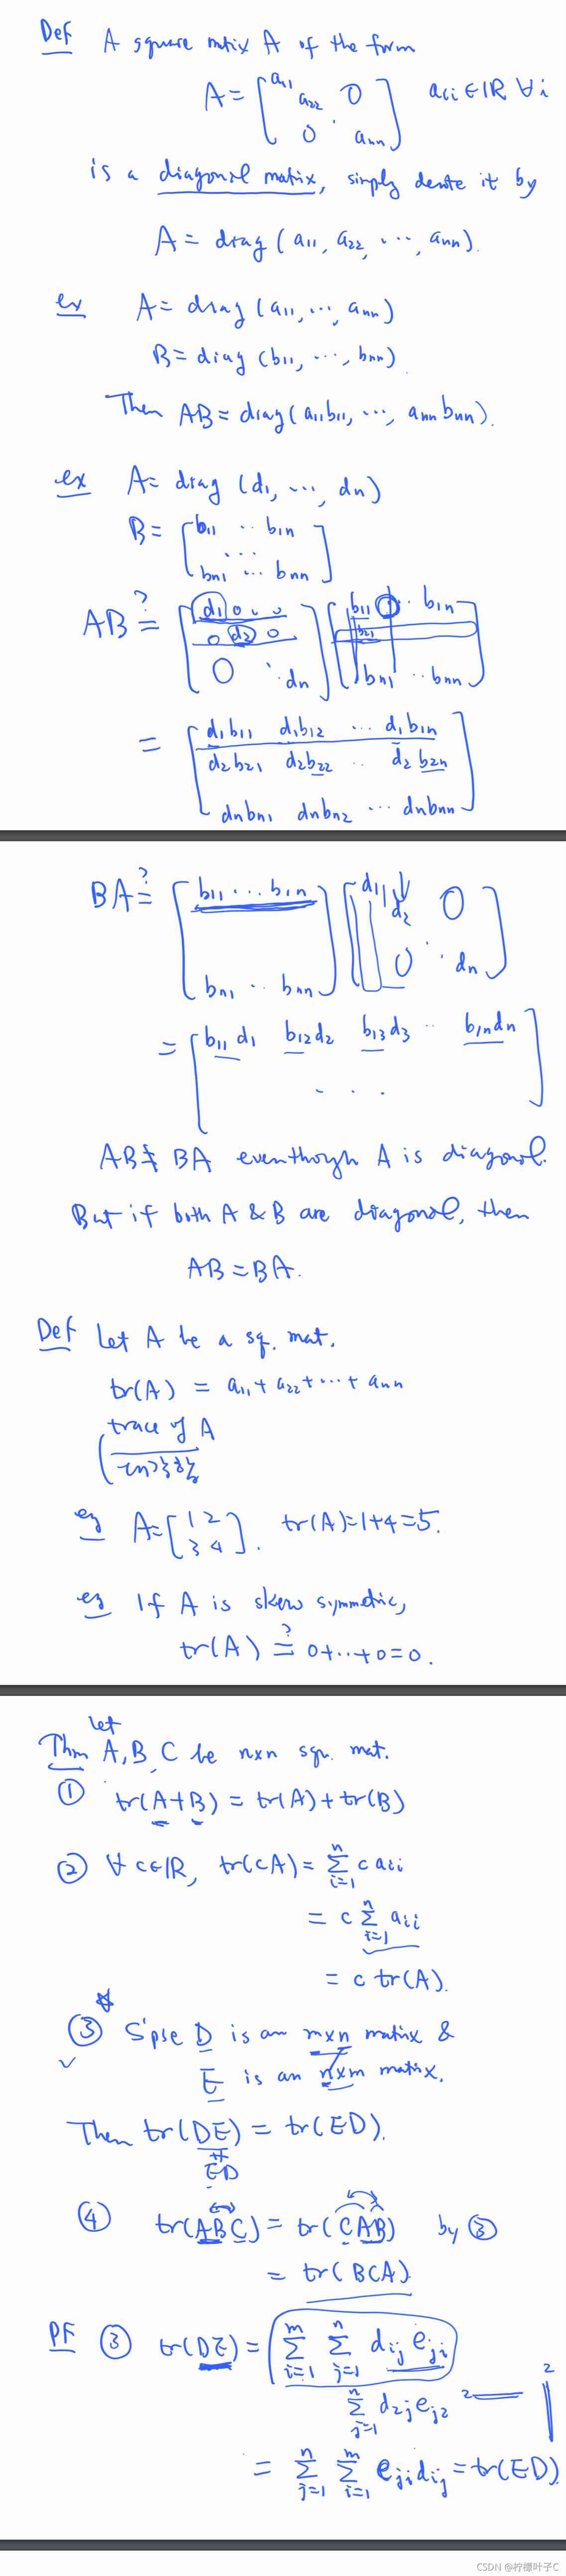 Def A square matix A of the form
A = [a11 a22 0 0 ⋱ ann] aii ∈ IR ∀i
is a diagonal matix, simply denote it by
A = diag (a11, a22, ⋯, ann).
ex A = diag (a11, ⋯, ann)
B = diag (b11, ⋯, bnn).
Then AB = diag(a11b11, ⋯, ann bnn).
ex A = diag (d1, ⋯, dn)
B = [b11 ⋯ b1n
⋯
bn1 ⋯ bnn]
AB ?= [d1 0 . . 0
0 d2 0
0 ⋱ dn] [b11 ⋯ b1n
b21
bn1 ⋯ bnn]
= [d1b11 d1b12 ⋯ d1b1n
d2b21 d2b22 ⋯ d2b2n
dnbn1 dnbn2 ⋯ dnbnn]
BA ?= [b11 ⋯ b1n
bn1 ⋯ bnn] [d1 d2 0
0 ⋱ dn]
= [b11 d1 b12d2 b13d3 ⋯ b1ndn
⋯]
AB ≠ BA eventhough A is diagonal.
But if both A & B are diagonal, then
AB = BA.
Def Let A be a sq. mat.
tr(A) = a11 + a22 + ⋯ + ann
trace of A
eg A = [1 2
3 4]. tr(A) = 1+4 = 5.
eg If A is skew symmetric,
tr(A) ?= 0+⋯+0 = 0.
Thm let A, B, C be nxn squ. mat.
① tr(A+B) = tr(A) + tr(B)
② ∀ c∈IR, tr(cA) = ∑_{i=1}^{n} c aii
= c ∑_{i=1}^{n} aii
= c tr(A).
③ S'pse D is an mxn matix &
E is an nxm matix.
Then tr(DE) = tr(ED).
≠
ED
④ tr(ABC) = tr(CAB) by ③
= tr(BCA)
PF ③ tr(DE) = ∑_{i=1}^{m} ∑_{j=1}^{n} dij eji
∑_{j=1}^{n} d2j ej2 2 2
= ∑_{j=1}^{n} ∑_{i=1}^{m} eji dij = tr(ED)
CSDN @柠檬叶子C